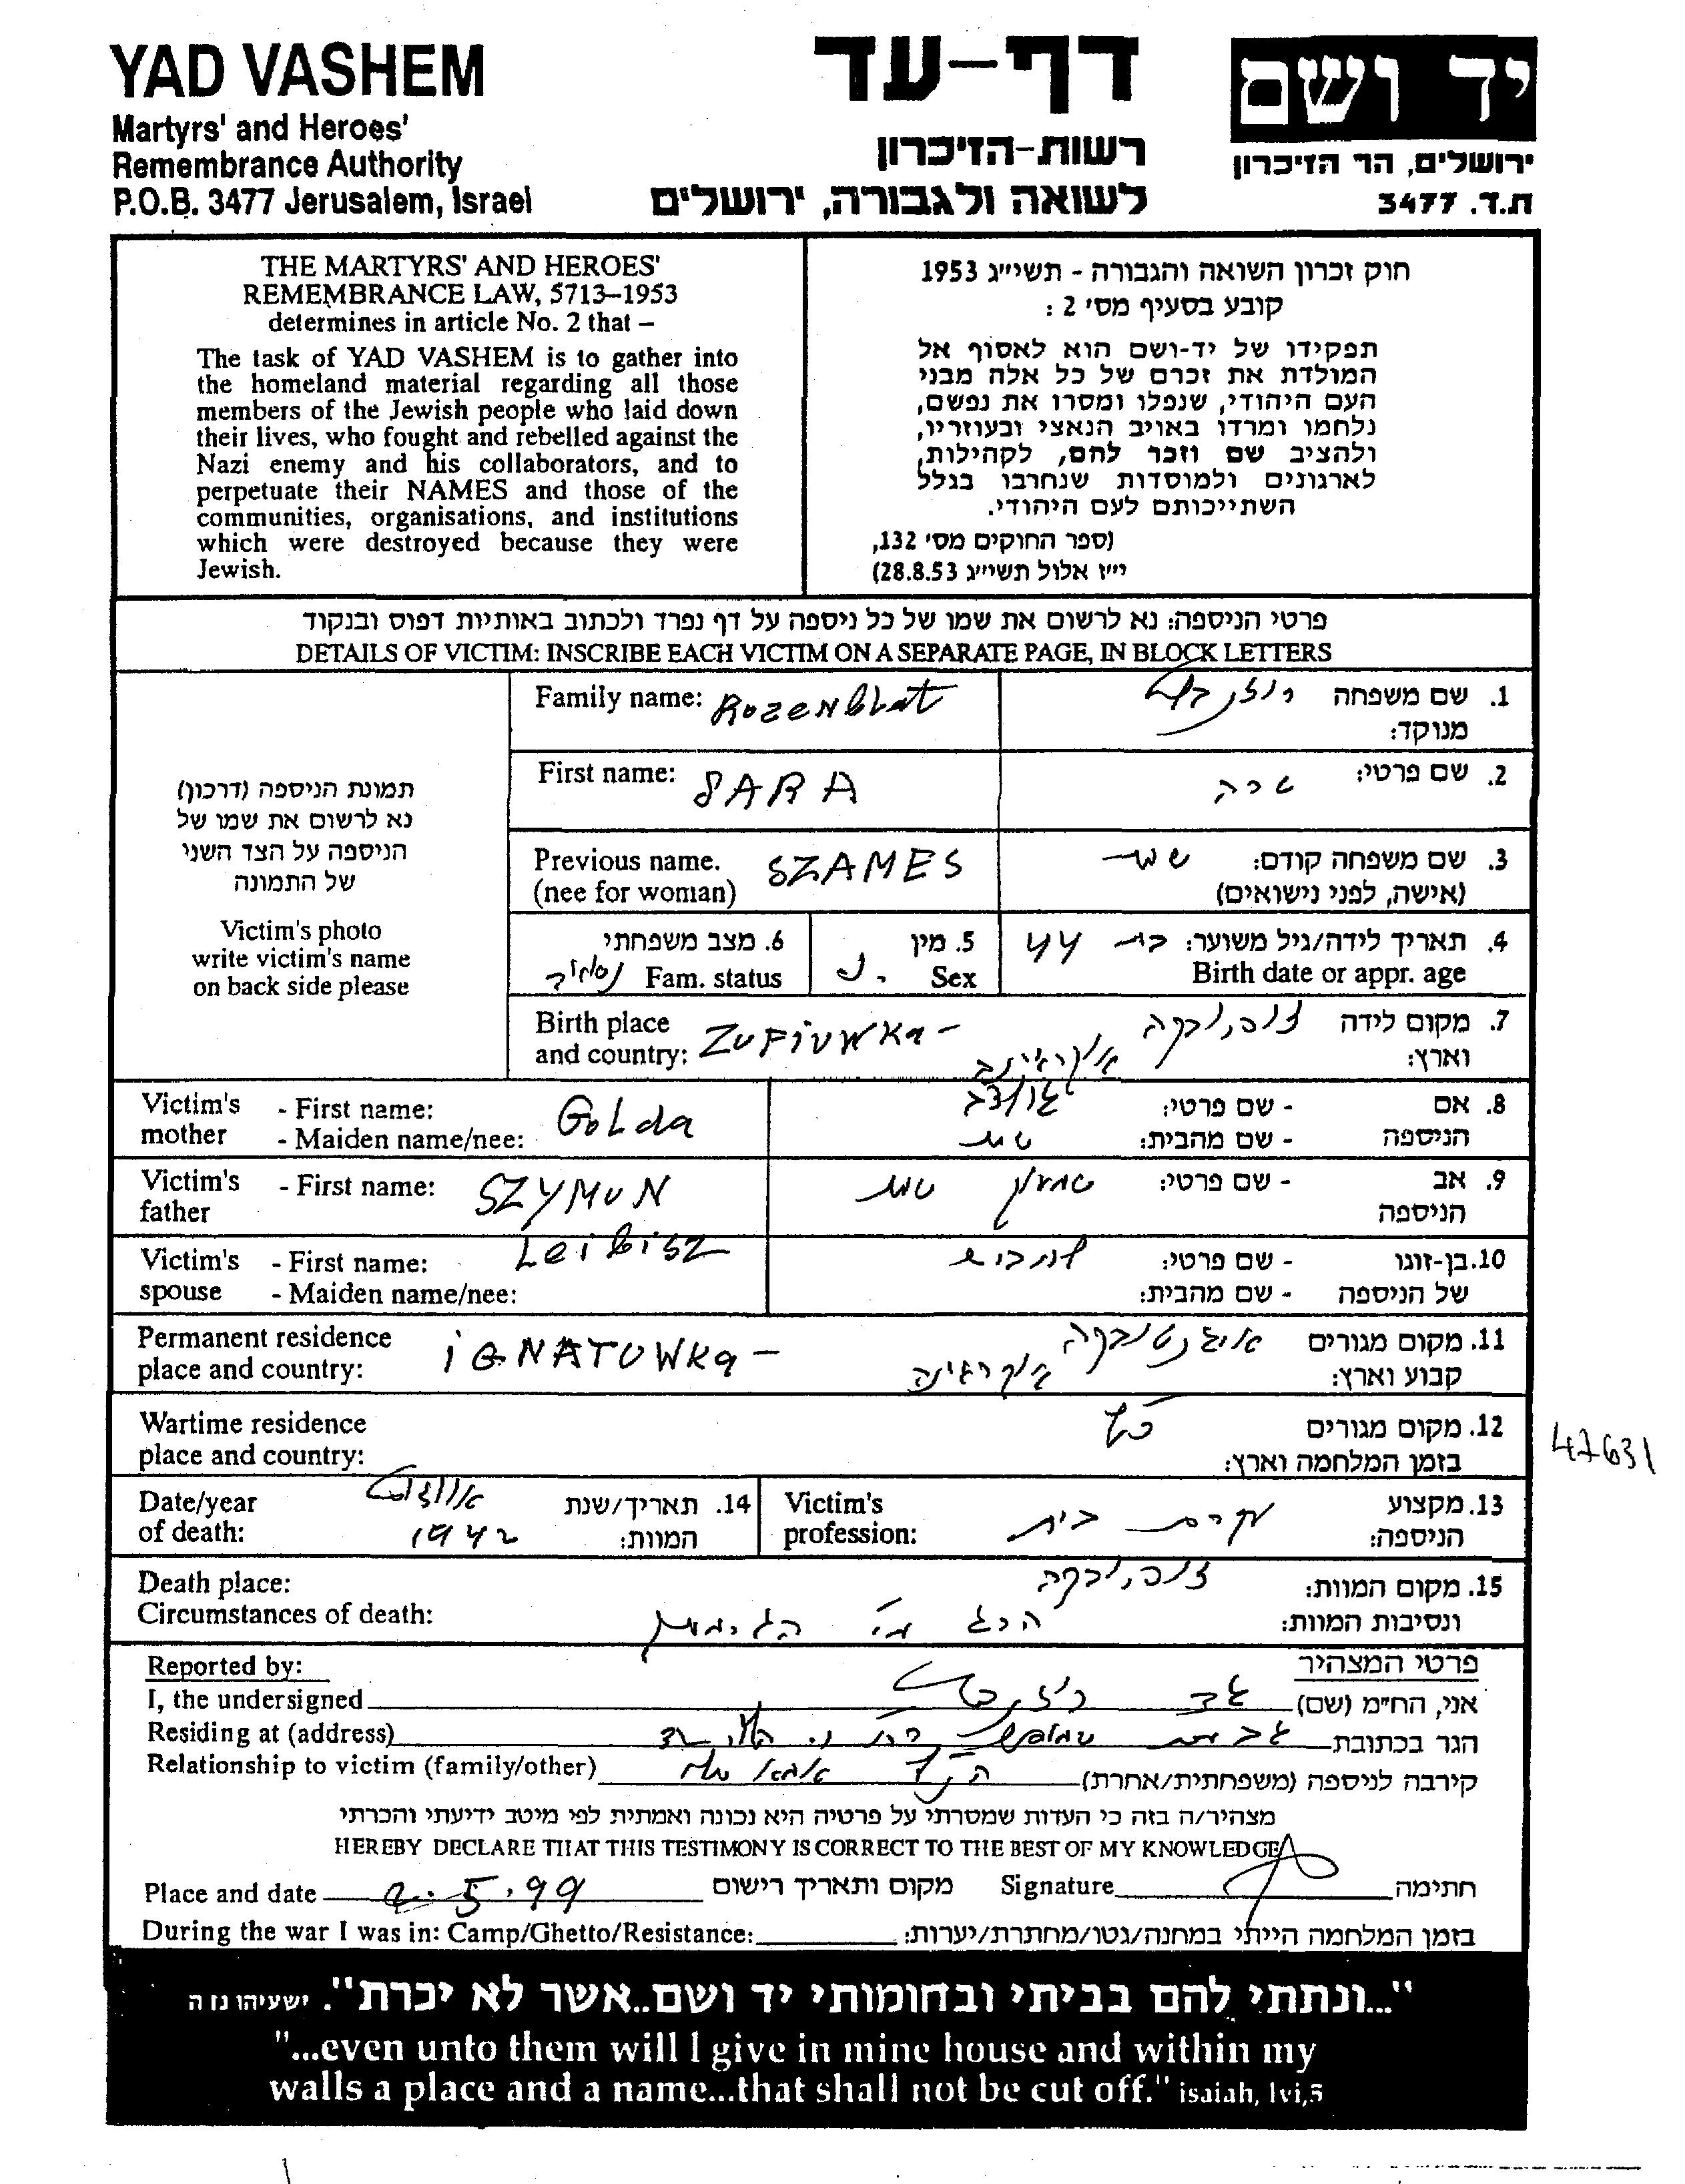 YAD VASHEM
Martyrs' and Heroes'
Remembrance Authority
P.O.B. 3477 Jerusalem, Israel
דף-עד
רשות-הזיכרון
לשואה ולגבורה, ירושלים
יד ושם
ירושלים, הר הזיכרון
ת.ד. 3477
THE MARTYRS' AND HEROES'
REMEMBRANCE LAW, 5713–1953
determines in article No. 2 that –
The task of YAD VASHEM is to gather into
the homeland material regarding all those
members of the Jewish people who laid down
their lives, who fought and rebelled against the
Nazi enemy and his collaborators, and to
perpetuate their NAMES and those of the
communities, organisations, and institutions
which were destroyed because they were
Jewish.
חוק זכרון השואה והגבורה - תשי״ג 1953
קובע בסעיף מס׳ 2 :
תפקידו של יד-ושם הוא לאסוף אל
המולדת את זכרם של כל אלה מבני
העם היהודי, שנפלו ומסרו את נפשם,
נלחמו ומרדו באויב הנאצי ובעוזריו,
ולהציב שם וזכר להם, לקהילות,
לארגונים ולמוסדות שנחרבו בגלל
השתייכותם לעם היהודי.
(ספר החוקים מס׳ 132,
י״ז אלול תשי״ג 28.8.53)
פרטי הניספה: נא לרשום את שמו של כל ניספה על דף נפרד ולכתוב באותיות דפוס ובנקוד
DETAILS OF VICTIM: INSCRIBE EACH VICTIM ON A SEPARATE PAGE, IN BLOCK LETTERS
תמונת הניספה (דרכון)
נא לרשום את שמו של
הניספה על הצד השני
של התמונה
Victim's photo
write victim's name
on back side please
Family name: Rozenblat
1. שם משפחה רוזנבלט
מנוקד:
First name: SARA
2. שם פרטי: שרה
Previous name. SZAMES
(nee for woman)
3. שם משפחה קודם: שמש
(אישה, לפני נישואים)
4. תאריך לידה/גיל משוער: בת 44
Birth date or appr. age
5. מין נ.
Sex
6. מצב משפחתי
Fam. status נשואה
Birth place
and country: ZUFIUWKA -
7. מקום לידה זופיובקה
וארץ: אוקראינה
Victim's - First name: Golda
mother - Maiden name/nee:
8. אם - שם פרטי: גולדה
הניספה - שם מהבית: שמש
Victim's - First name: SZYMUN
father
9. אב - שם פרטי: שמעון שמש
הניספה
Victim's - First name: Leibisz
spouse - Maiden name/nee:
10. בן-זוגו - שם פרטי: לייביש
של הניספה - שם מהבית:
Permanent residence
place and country: iGNATUWKa -
11. מקום מגורים איגנטובקה
קבוע וארץ: אוקראינה
Wartime residence
place and country:
12. מקום מגורים כנ״ל
בזמן המלחמה וארץ:
47631
Date/year
of death:
14. תאריך/שנת אוגוסט
המוות: 1942
Victim's
profession:
13. מקצוע עקרת בית
הניספה:
Death place:
Circumstances of death:
15. מקום המוות: זופיובקה
ונסיבות המוות:
Reported by:
פרטי המצהיר
I, the undersigned
אני, הח״מ (שם) גד רוזנבלט
Residing at (address)
הגר בכתובת
Relationship to victim (family/other)
קירבה לניספה (משפחתית/אחרת)
מצהיר/ה בזה כי העדות שמסרתי על פרטיה היא נכונה ואמתית לפי מיטב ידיעתי והכרתי
HEREBY DECLARE THAT THIS TESTIMONY IS CORRECT TO THE BEST OF MY KNOWLEDGE
Place and date 2.5.99 מקום ותאריך רישום
Signature חתימה
During the war I was in: Camp/Ghetto/Resistance:
בזמן המלחמה הייתי במחנה/גטו/מחתרת/יערות:
"...ונתתי להם בביתי ובחומותי יד ושם..אשר לא יכרת". ישעיהו נו ה
"...even unto them will I give in mine house and within my
walls a place and a name...that shall not be cut off." isaiah, lvi,5